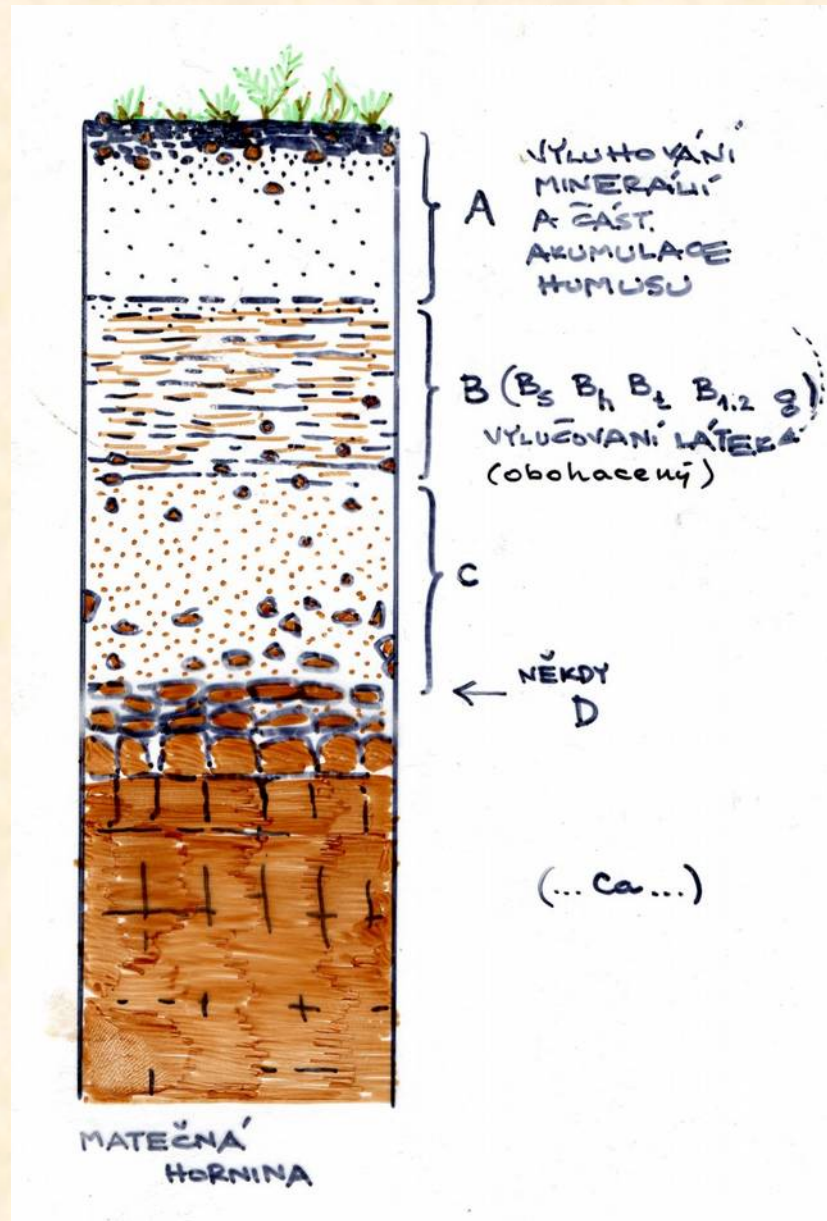 A
VYLUHOVÁNÍ
MINERÁLŮ
A ČÁST.
AKUMULACE
HUMUSU
B (Bs Bh Bt B1.2 g)
VYLUČOVANÍ LÁTEK
(obohacený)
C
← NĚKDY
D
(... Ca ...)
MATEČNÁ
HORNINA